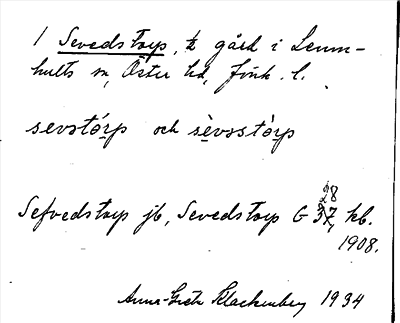 1 Sevedstorp, ½ gård i Lenn-
hults sn, Öster hd, Jönk. l.
sevstórp och sèvsstórp
Sefvedstorp jb, Sevedstorp G 37 28 kb.
1908.
Anna-Greta Blackenberg 1934